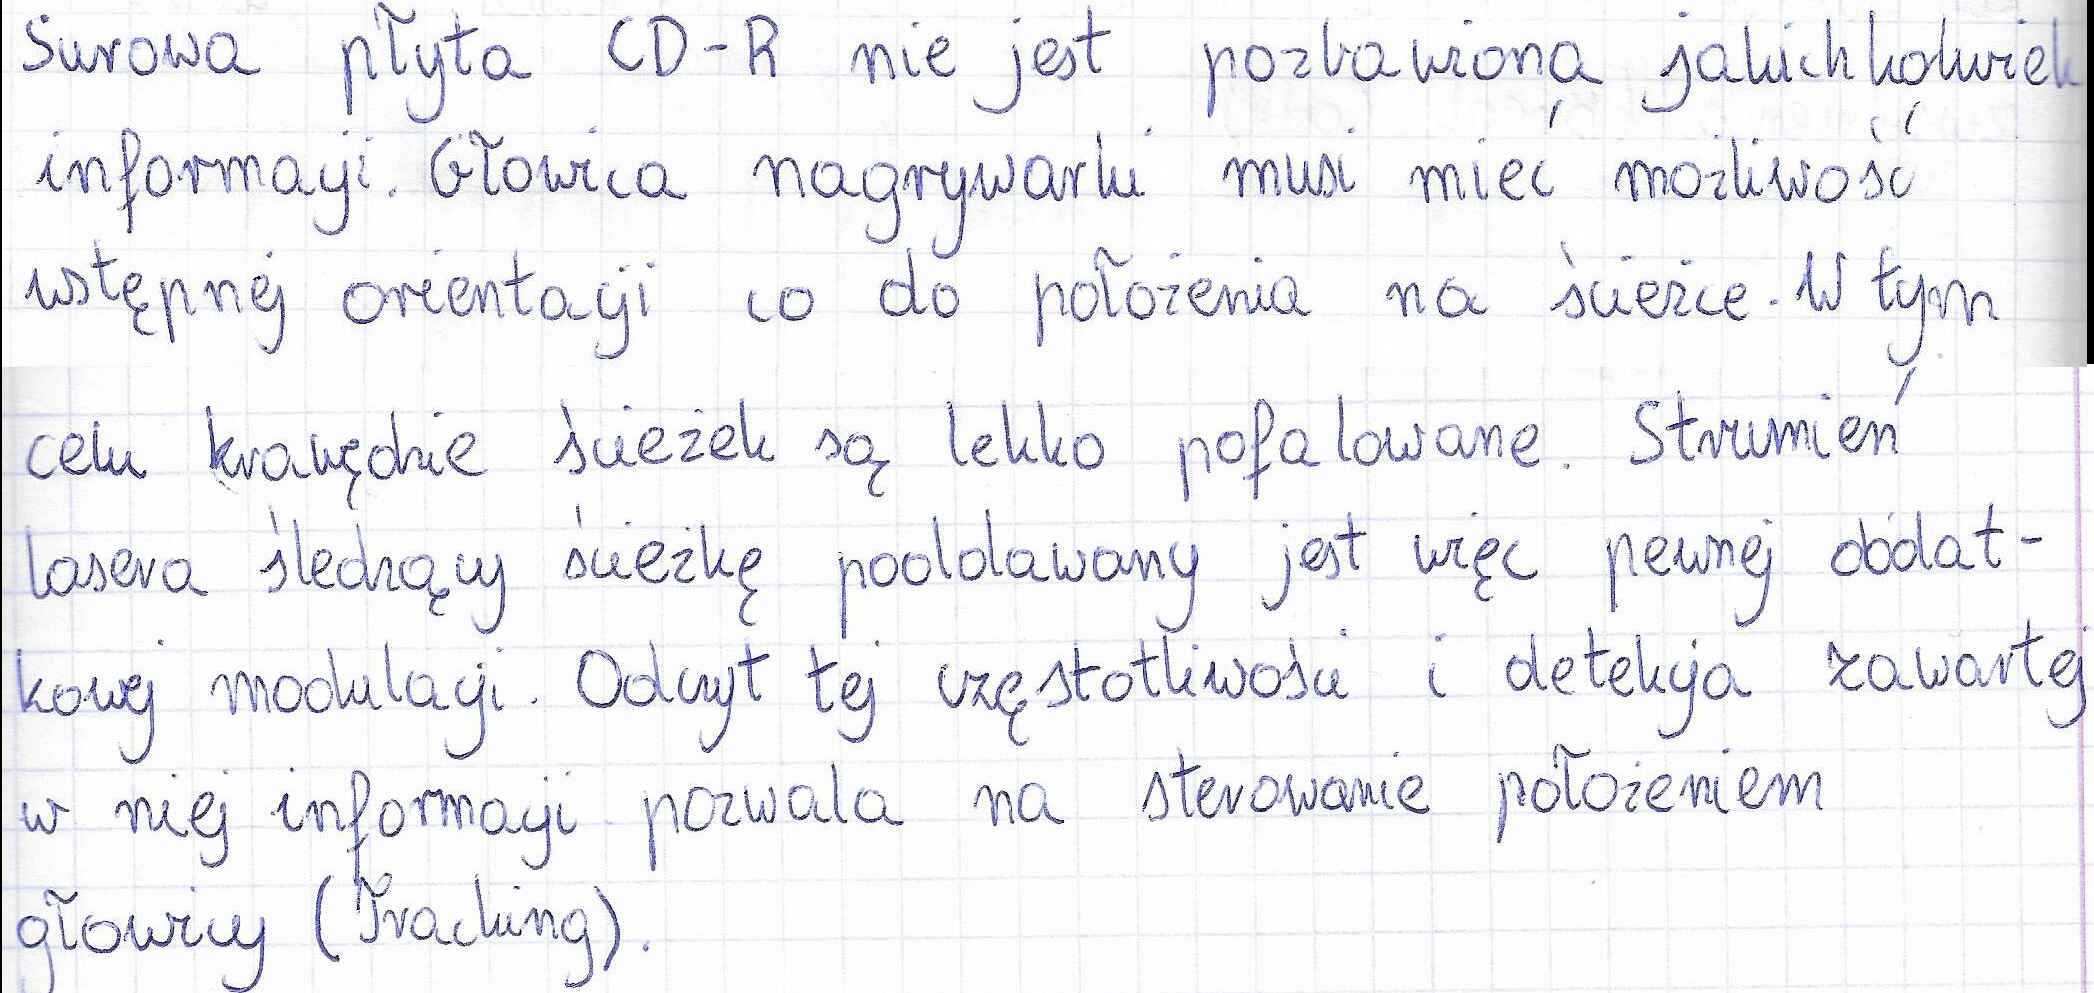 Surowa płyta CD-R nie jest pozbawiona jakichkolwiek
informacji. Głowica nagrywarki musi mieć możliwość
wstępnej orientacji co do położenia na ścieżce. W tym
celu krawędzie ścieżek są lekko pofalowane. Strumień
lasera śledzący ścieżkę poddawany jest więc pewnej dodat-
kowej modulacji. Odczyt tej częstotliwości i detekcja zawartej
w niej informacji pozwala na sterowanie położeniem
głowicy (Tracking).